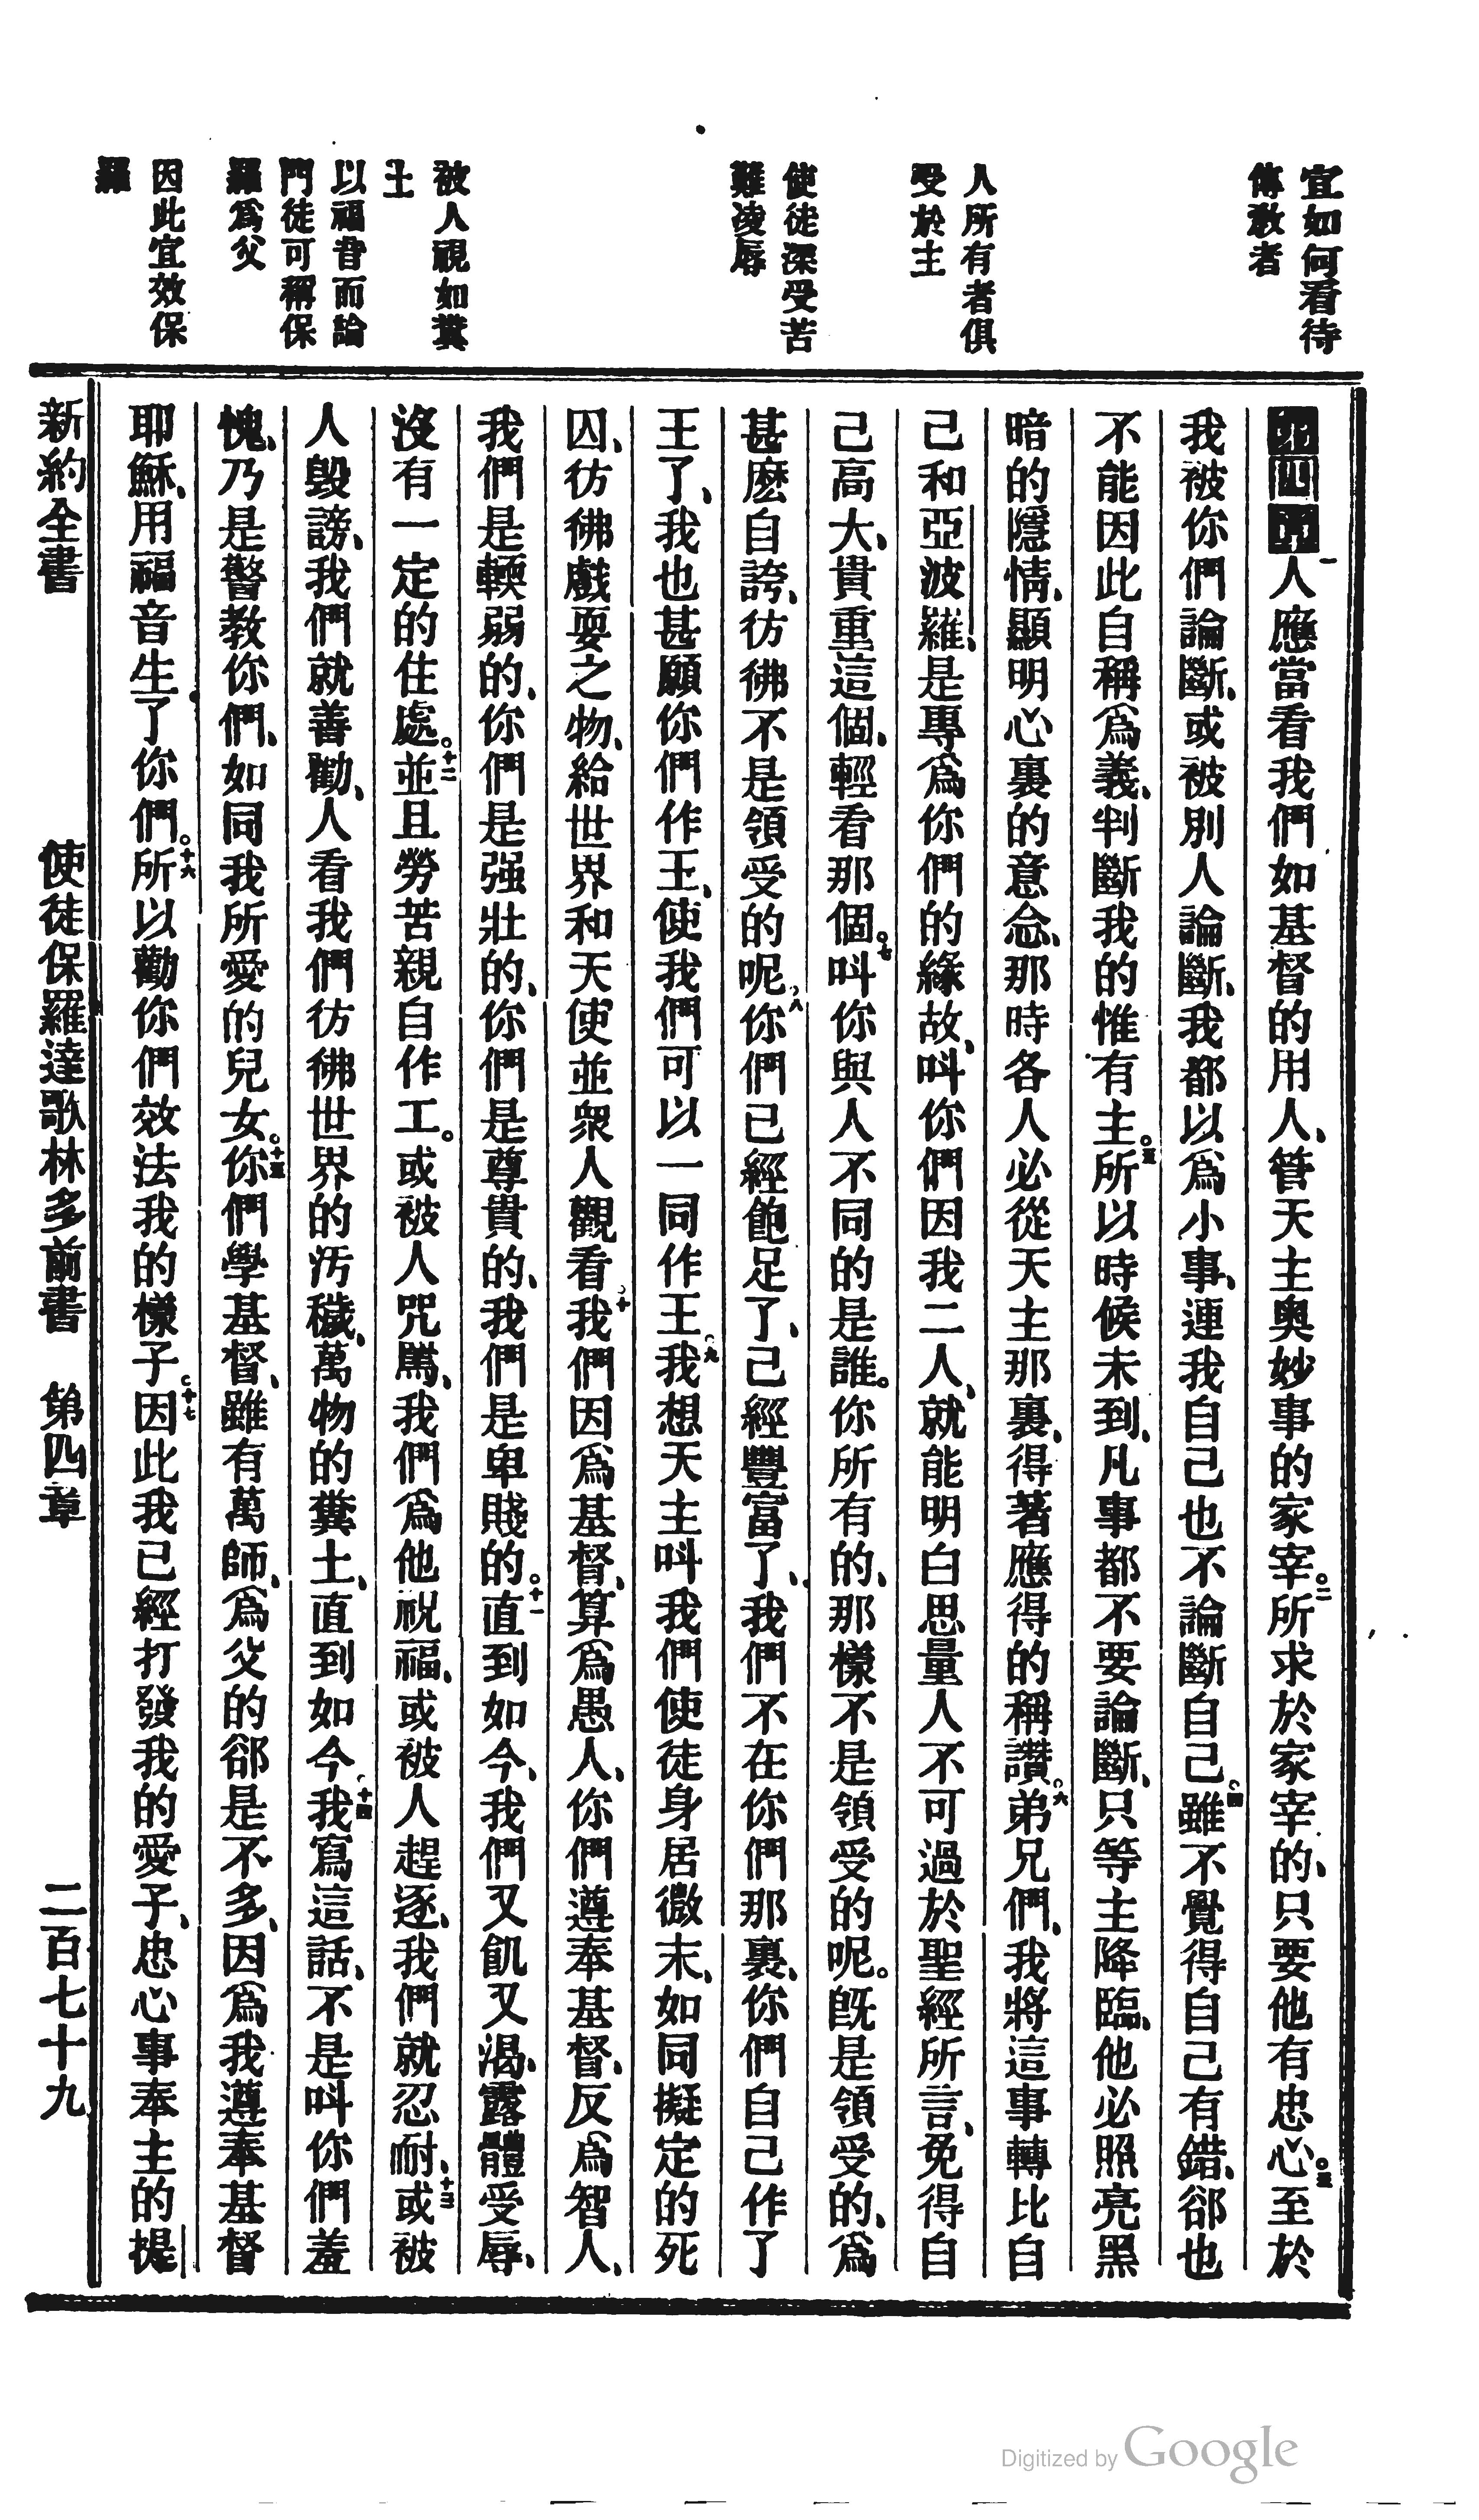 宜如何看待
傳教者
人所有者俱
受於主
使徒深受苦
難凌辱
被人視如糞
土
以福音而論
門徒可稱保
羅爲父
因此宜效保
羅
第四章一人應當看我們如基督的用人、管天主奧妙事的家宰。二所求於家宰的、只要他有忠心。三至於
我被你們論斷、或被別人論斷、我都以爲小事、連我自己也不論斷自己。四雖不覺得自己有錯、卻也
不能因此自稱爲義、判斷我的惟有主。五所以時候未到、凡事都不要論斷、只等主降臨、他必照亮黑
暗的隱情、顯明心裏的意念、那時各人必從天主那裏、得著應得的稱讚。六弟兄們、我將這事轉比自
己和亞波羅、是專爲你們的緣故、叫你們因我二人、就能明白思量人不可過於聖經所言、免得自
己高大、貴重這個、輕看那個。七叫你與人不同的是誰。你所有的、那樣不是領受的呢。旣是領受的、爲
甚麽自誇、彷彿不是領受的呢。八你們已經飽足了、已經豐富了、我們不在你們那裏、你們自己作了
王了、我也甚願你們作王、使我們可以一同作王。九我想天主叫我們使徒身居微末、如同擬定的死
囚、彷彿戲耍之物、給世界和天使並衆人觀看。十我們因爲基督、算爲愚人、你們遵奉基督、反爲智人、
我們是輭弱的、你們是强壯的、你們是尊貴的、我們是卑賤的。十一直到如今、我們又飢又渴、露體受辱、
沒有一定的住處。十二並且勞苦親自作工。或被人咒駡、我們爲他祝福、或被人趕逐、我們就忍耐、十三或被
人毀謗、我們就善勸、人看我們彷彿世界的汚穢、萬物的糞土、直到如今。十四我寫這話、不是叫你們羞
愧、乃是警教你們、如同我所愛的兒女。十五你們學基督、雖有萬師、爲父的卻是不多、因爲我遵奉基督
耶穌、用福音生了你們。十六所以勸你們效法我的樣子。十七因此我已經打發我的愛子、忠心事奉主的提
新約全書　使徒保羅達歌林多前書　第四章　二百七十九
Digitized by Google